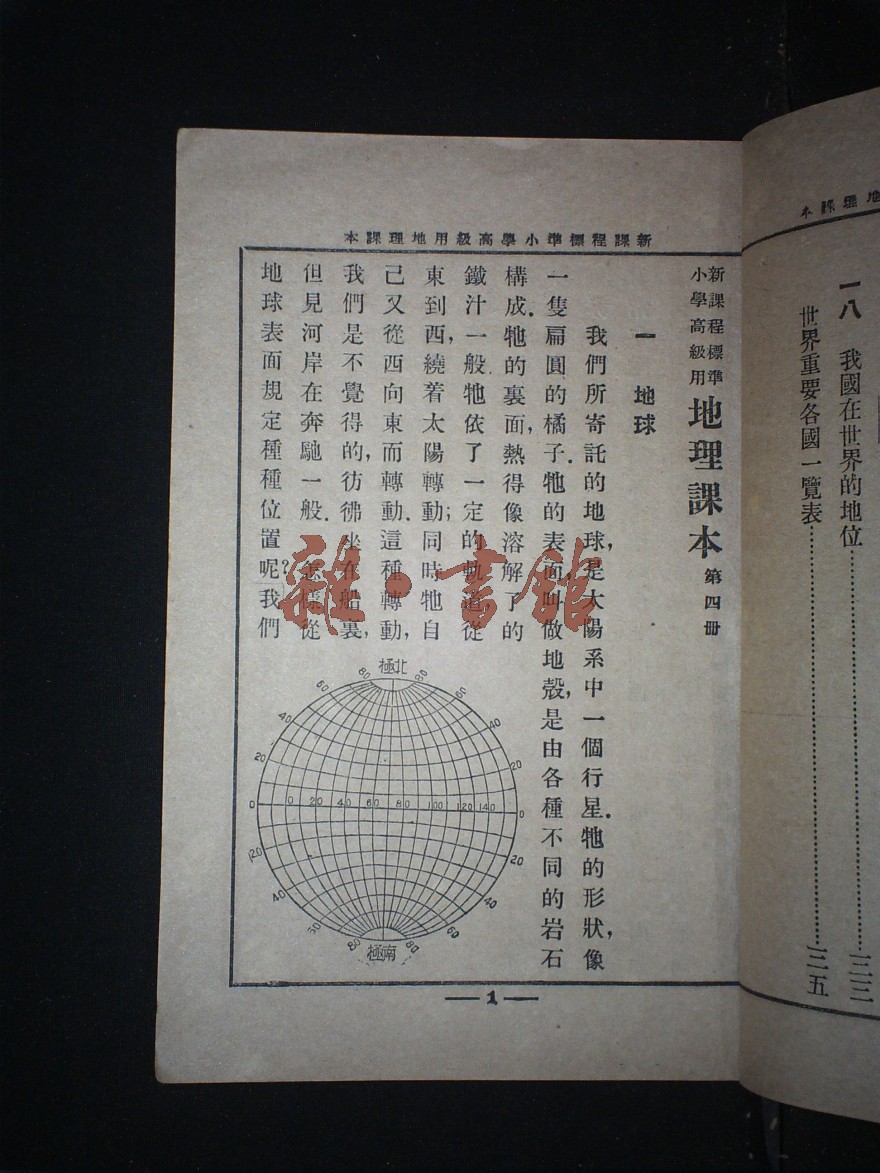 地理課本
一八 我國在世界的地位……三三
世界重要各國一覽表……三五
新課程標準小學高級用地理課本
新課程標準
小學高級用
地理課本 第四冊
一 地球
我們所寄託的地球,是太陽系中一個行星.牠的形狀,像
一隻扁圓的橘子.牠的表面,叫做地殼,是由各種不同的岩石
構成.牠的裏面,熱得像溶解了的
鐵汁一般牠依了一定的軌道,從
東到西,繞着太陽轉動;同時牠自
己又從西向東而轉動.這種轉動,
我們是不覺得的,彷彿坐在船裏,
但見河岸在奔馳一般.怎樣從
地球表面規定種種位置呢?我們
北極
80 80
60 60
40 40
20 20
0 0 20 40 60 80 100 120 140 0
20 20
40 40
60
80 80
南極
1
雜·書館